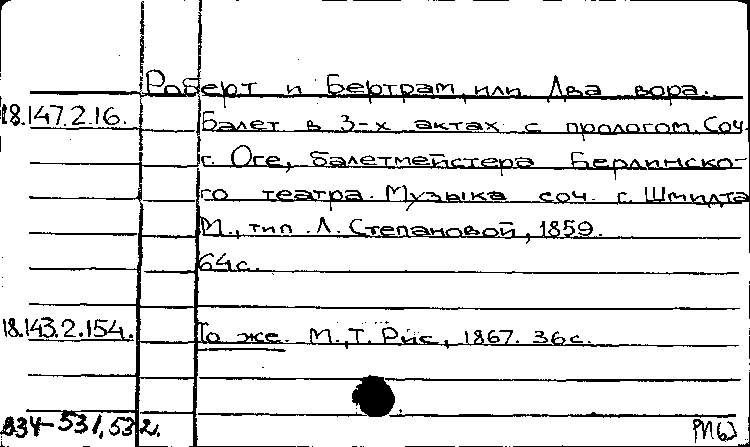 Роберт и Бертрам, или Два вора.
18.147.2.16. Балет в 3-х актах с прологом. Соч.
г. Оге, балетмейстера Берлинско-
го театра. Музыка соч. г. Шмидта
М., тип. Л. Степановой, 1859.
64с.
18.143.2.154. То же. М., Т. Рис, 1867. 36с.
934-531,532.